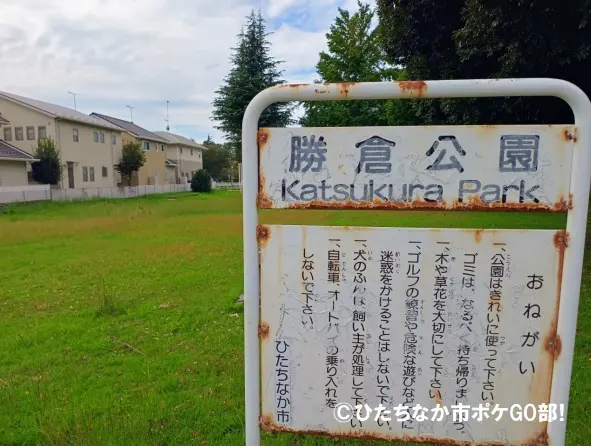 勝倉公園
Katsukura Park
おねがい
一、公園はきれいに使って下さい。
ゴミは、なるべく持ち帰りましょう。
一、木や草花を大切にして下さい。
一、ゴルフの練習や危険な遊びなど、人に
迷惑をかけることはしないで下さい。
一、犬のふんは飼い主が処理して下さい。
一、自転車、オートバイの乗り入れを
しないで下さい。
ひたちなか市
©ひたちなか市ポケGO部!